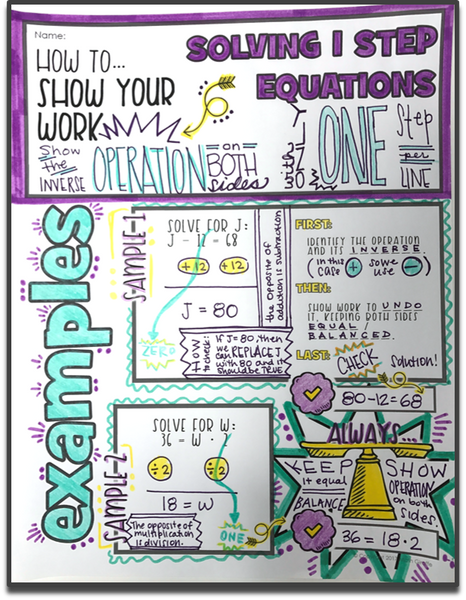 Name:
HOW TO...
SHOW YOUR
WORK
SOLVING 1 STEP
EQUATIONS
Show
the
INVERSE
OPERATION
on
BOTH
sides
with
ONE
Step
per
LINE
examples
SAMPLE-1
SOLVE FOR J:
J - 12 = 68
+12 +12
J = 80
ZERO
the opposite of
addition is subtraction
HOW
to check:
If J=80, then
we can REPLACE J
with 80 and it
should be TRUE
FIRST:
IDENTIFY THE OPERATION
AND ITS INVERSE.
(in this
case + so we
use -)
THEN:
SHOW WORK TO UNDO
IT, KEEPING BOTH SIDES
EQUAL /
BALANCED.
LAST:
CHECK
Solution!
80-12=68
SAMPLE-2
SOLVE FOR W:
36 = W · 2
÷2 ÷2
18 = W
ONE
The opposite of
multiplication
is division.
ALWAYS...
KEEP
it equal
BALANCE
SHOW
OPERATION
on both
sides.
36 = 18·2